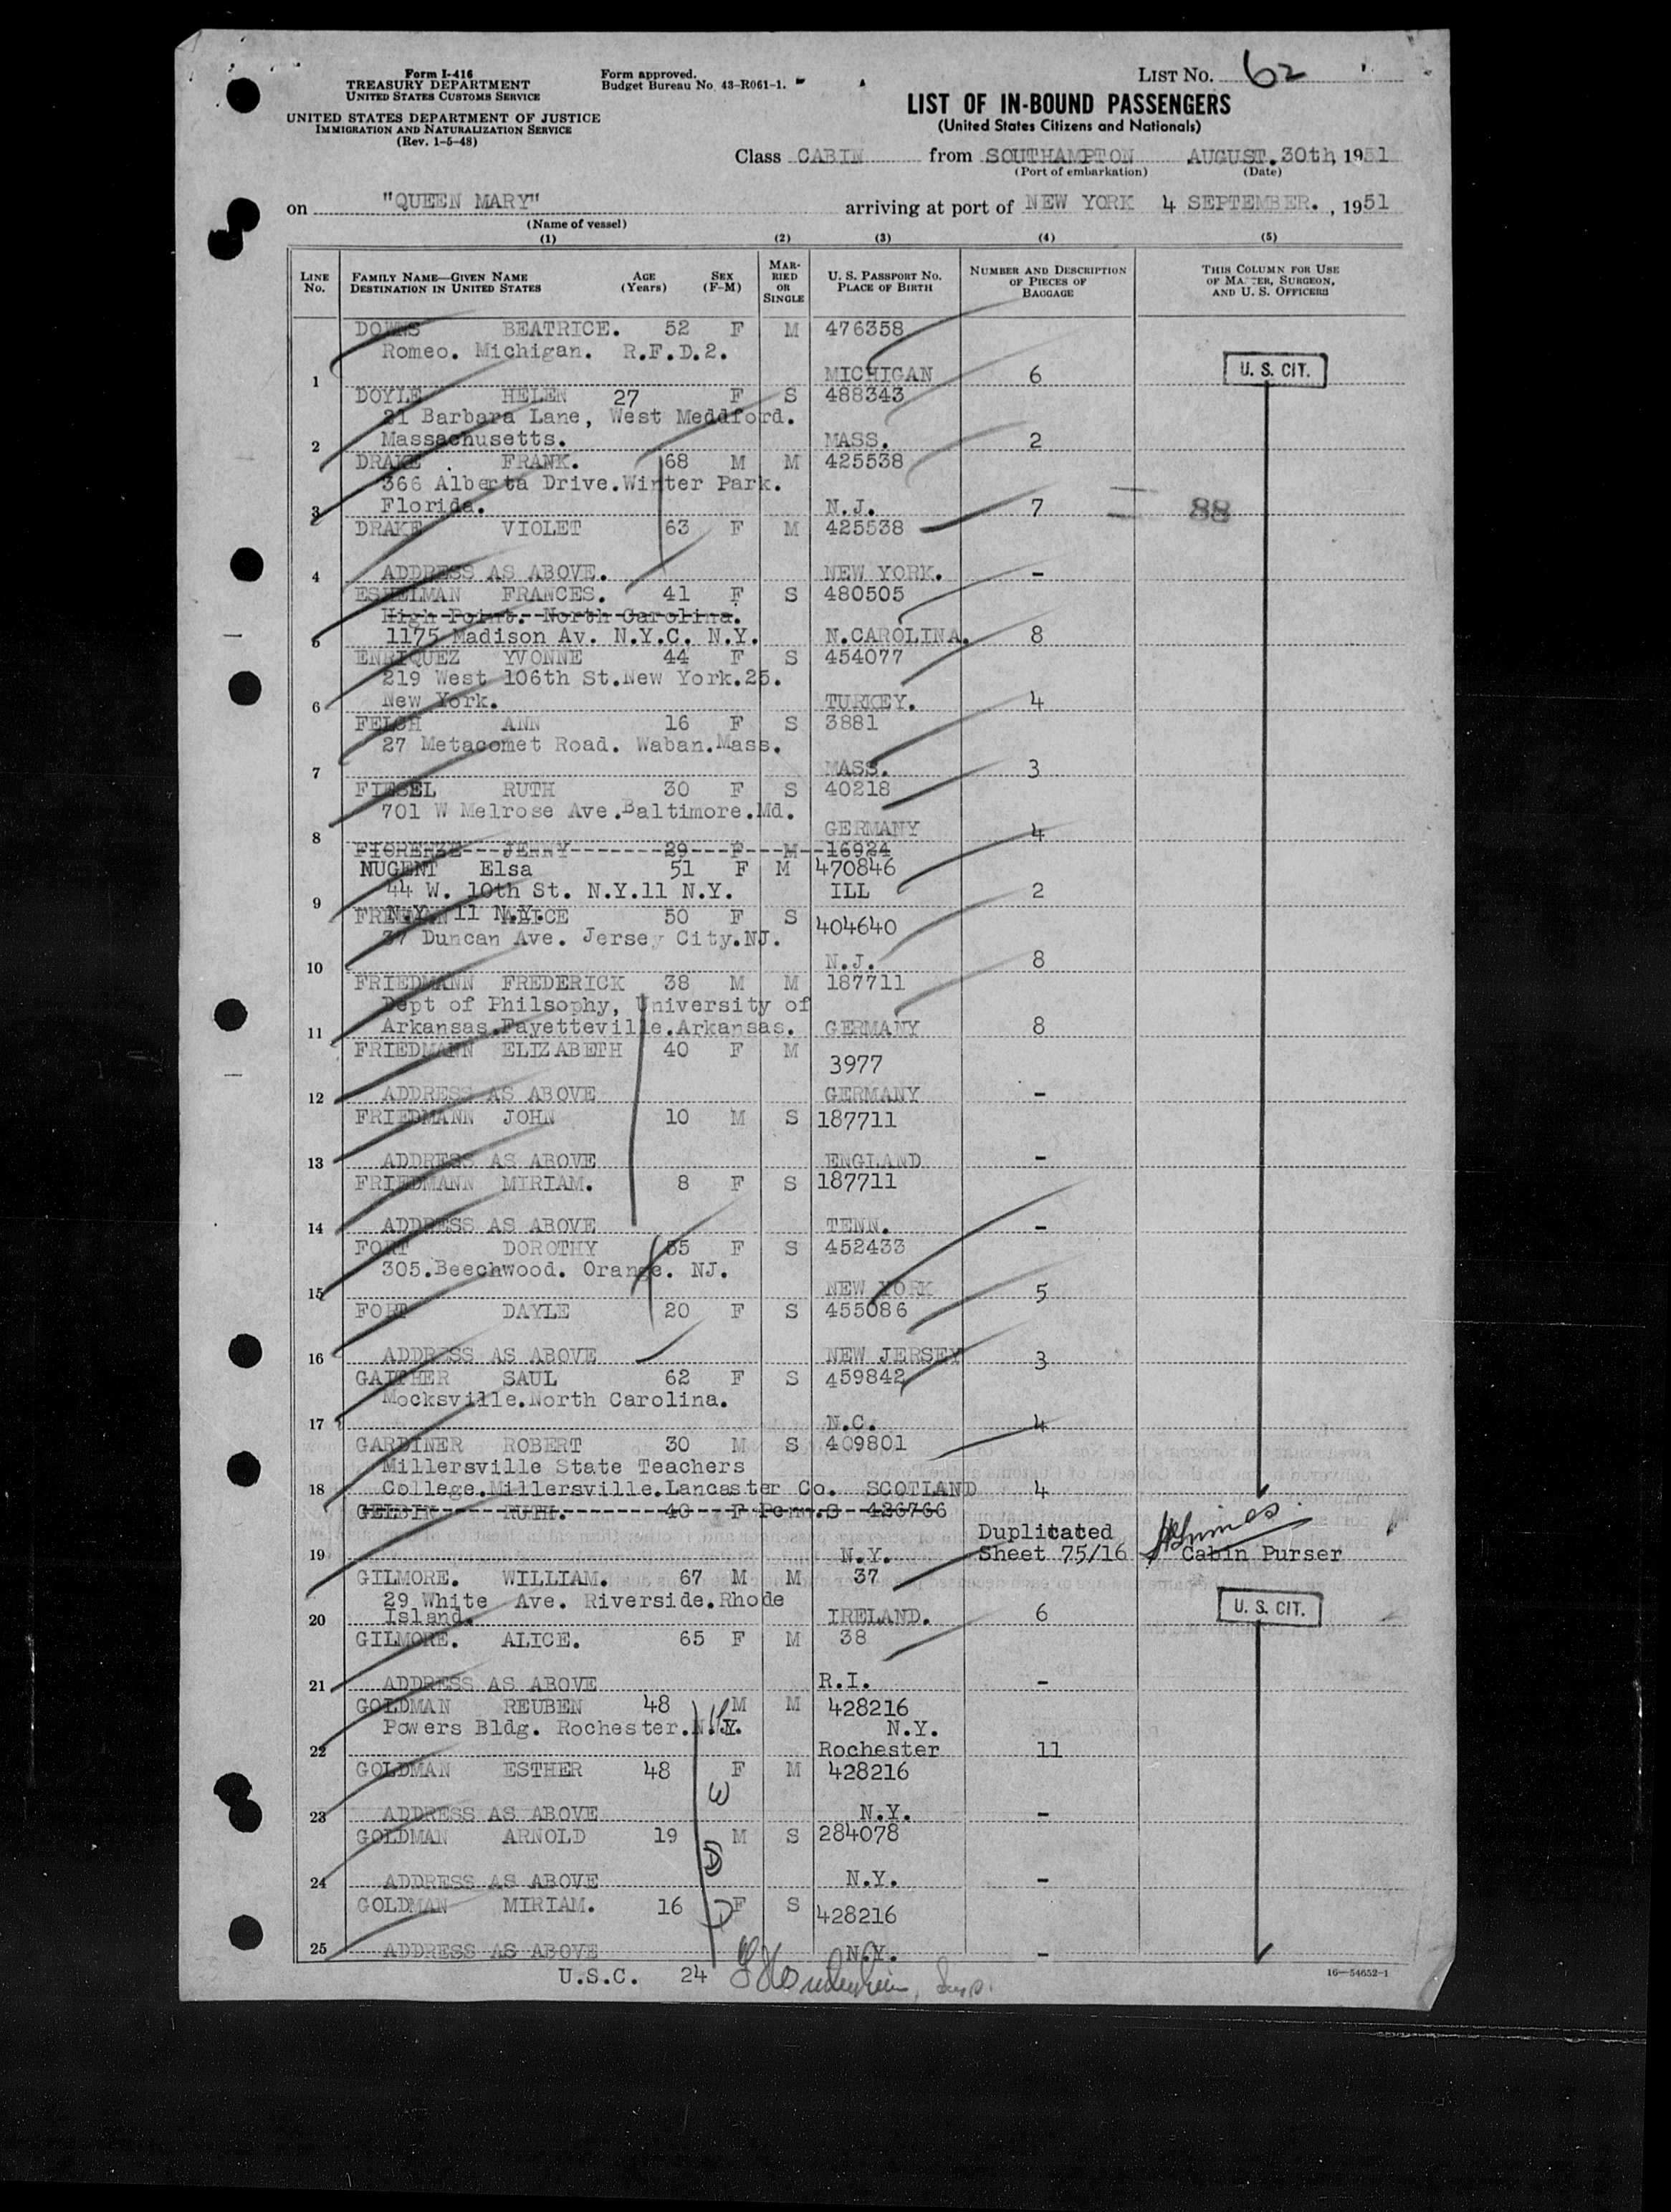 Form I-416
TREASURY DEPARTMENT
UNITED STATES CUSTOMS SERVICE
UNITED STATES DEPARTMENT OF JUSTICE
IMMIGRATION AND NATURALIZATION SERVICE
(Rev. 1-5-48)
Form approved.
Budget Bureau No. 43-R061-1.
LIST No. 62
LIST OF IN-BOUND PASSENGERS
(United States Citizens and Nationals)
Class CABIN from SOUTHAMPTON AUGUST.30th, 1951
(Port of embarkation) (Date)
on "QUEEN MARY" arriving at port of NEW YORK 4 SEPTEMBER. , 1951
(Name of vessel)
(1) (2) (3) (4) (5)
LINE No. FAMILY NAME—GIVEN NAME DESTINATION IN UNITED STATES AGE (Years) SEX (F-M) MARRIED OR SINGLE U. S. PASSPORT No. PLACE OF BIRTH NUMBER AND DESCRIPTION OF PIECES OF BAGGAGE THIS COLUMN FOR USE OF MASTER, SURGEON, AND U. S. OFFICERS
DOWNS BEATRICE. 52 F M 476358
Romeo. Michigan. R.F.D.2.
1 MICHIGAN 6 U. S. CIT.
DOYLE HELEN 27 F S 488343
21 Barbara Lane, West Meddford.
2 Massachusetts. MASS. 2
DRAKE . FRANK. 68 M M 425538
366 Alberta Drive.Winter Park.
3 Florida. N.J. 7 88
DRAKE VIOLET 63 F M 425538
4 ADDRESS AS ABOVE. NEW YORK. -
ESHELMAN FRANCES. 41 F S 480505
High Point. North Carolina.
5 1175 Madison Av. N.Y.C. N.Y. N.CAROLINA. 8
ENRIQUEZ YVONNE 44 F S 454077
219 West 106th St.New York.25.
6 New York. TURKEY. 4
FELCH ANN 16 F S 3881
27 Metacomet Road. Waban.Mass.
7 MASS. 3
FIESEL RUTH 30 F S 40218
701 W Melrose Ave.Baltimore.Md.
8 GERMANY 4
FIORENZE JENNY 29 F M 16924
NUGENT Elsa 51 F M 470846
44 W. 10th St. N.Y.11 N.Y. ILL 2
9 N.Y. 11 N.Y.
ALICE 50 F S 404640
37 Duncan Ave. Jersey City.NJ.
10 N.J. 8
FRIEDMANN FREDERICK 38 M M 187711
Dept of Philsophy, University of
11 Arkansas.Fayetteville.Arkansas. GERMANY 8
FRIEDMANN ELIZABETH 40 F M 3977
12 ADDRESS AS ABOVE GERMANY -
FRIEDMANN JOHN 10 M S 187711
13 ADDRESS AS ABOVE ENGLAND -
FRIEDMANN MIRIAM. 8 F S 187711
14 ADDRESS AS ABOVE TENN. -
FORT DOROTHY 55 F S 452433
305.Beechwood. Orange. NJ.
15 NEW YORK 5
FORT DAYLE 20 F S 455086
16 ADDRESS AS ABOVE NEW JERSEY 3
GAITHER SAUL 62 F S 459842
Mocksville.North Carolina.
17 N.C. 4
GARDINER ROBERT 30 M S 409801
Millersville State Teachers
18 College.Millersville.Lancaster Co. SCOTLAND 4
GELBIN RUTH. 40 F Penn.S 426766
Duplicated
19 N.Y. Sheet 75/16 Cabin Purser
GILMORE. WILLIAM. 67 M M 37
29 White Ave. Riverside.Rhode
20 Island. IRELAND. 6 U. S. CIT.
GILMORE. ALICE. 65 F M 38
21 ADDRESS AS ABOVE R.I. -
GOLDMAN REUBEN 48 M M 428216
Powers Bldg. Rochester.N.Y. N.Y.
22 Rochester 11
GOLDMAN ESTHER 48 F M 428216
W
23 ADDRESS AS ABOVE N.Y. -
GOLDMAN ARNOLD 19 M S 284078
D
24 ADDRESS AS ABOVE N.Y. -
GOLDMAN MIRIAM. 16 F S 428216
25 ADDRESS AS ABOVE N.Y. -
U.S.C. 24
16—54652-1